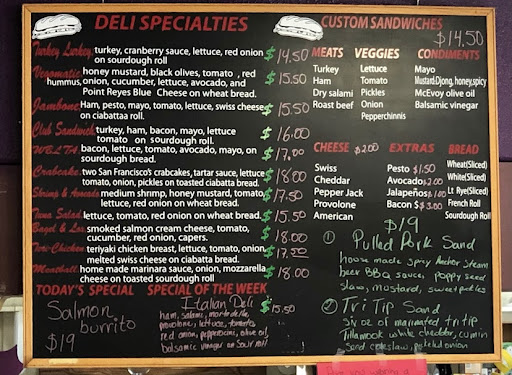 DELI SPECIALTIES
Turkey Lurkey, turkey, cranberry sauce, lettuce, red onion
on sourdough roll
$14.50
Vegomatic honey mustard, black olives, tomato , red
hummus, onion, cucumber, lettuce, avocado, and
Point Reyes Blue Cheese on wheat bread.
$15.50
Jambone Ham, pesto, mayo, tomato, lettuce, swiss cheese
on ciabattaa roll.
$15.50
Club Sandwich turkey, ham, bacon, mayo, lettuce
tomato on sourdough roll.
$16.00
WBLTA bacon, lettuce, tomato, avocado, mayo, on
sourdough bread.
$17.00
Crabcake two San Francisco's crabcakes, tartar sauce, lettuce
tomato, onion, pickles on toasted ciabatta bread.
$18.00
Shrimp & Avocado medium shrimp, honey mustard, tomato
lettuce, red onion on wheat bread.
$17.50
Tuna Salad lettuce, tomato, red onion on wheat bread.
$15.50
Bagel & Lox smoked salmon cream cheese, tomato,
cucumber, red onion, capers.
$18.00
Teri-Chicken teriyaki chicken breast, lettuce, tomato, onion
melted swiss cheese on ciabatta bread.
$17.50
Meatball home made marinara sauce, onion, mozzarella
cheese on toasted sourdough roll
$18.00
TODAY'S SPECIAL
Salmon
burrito
$19
SPECIAL OF THE WEEK
Italian Deli
$15.50
ham, salami, mortadella,
provolone, lettuce, tomatoes
red onion, pepperoncini, olive oil,
balsamic vinegar on sour roll
CUSTOM SANDWICHES
$14.50
MEATS
Turkey
Ham
Dry salami
Roast beef
VEGGIES
Lettuce
Tomato
Pickles
Onion
Pepperchinnis
CONDIMENTS
Mayo
Mustard:Djong, honey, spicy
McEvoy olive oil
Balsamic vinegar
CHEESE $2.00
Swiss
Cheddar
Pepper Jack
Provolone
American
EXTRAS
Pesto $1.50
Avocado $2.00
Jalapeños $1.00
Bacon $3.00
BREAD
Wheat(Sliced)
White(Sliced)
Lt Rye(Sliced)
French Roll
Sourdough Roll
$19
① Pulled Pork Sand
house made Spicy Anchor Steam
beer BBQ sauce, poppy seed
slaw, mustard, sweet pickles
② Tri Tip Sand
six oz of marinated tri tip
Tillamook white cheddar, cumin
seed coleslaw, pickled onion